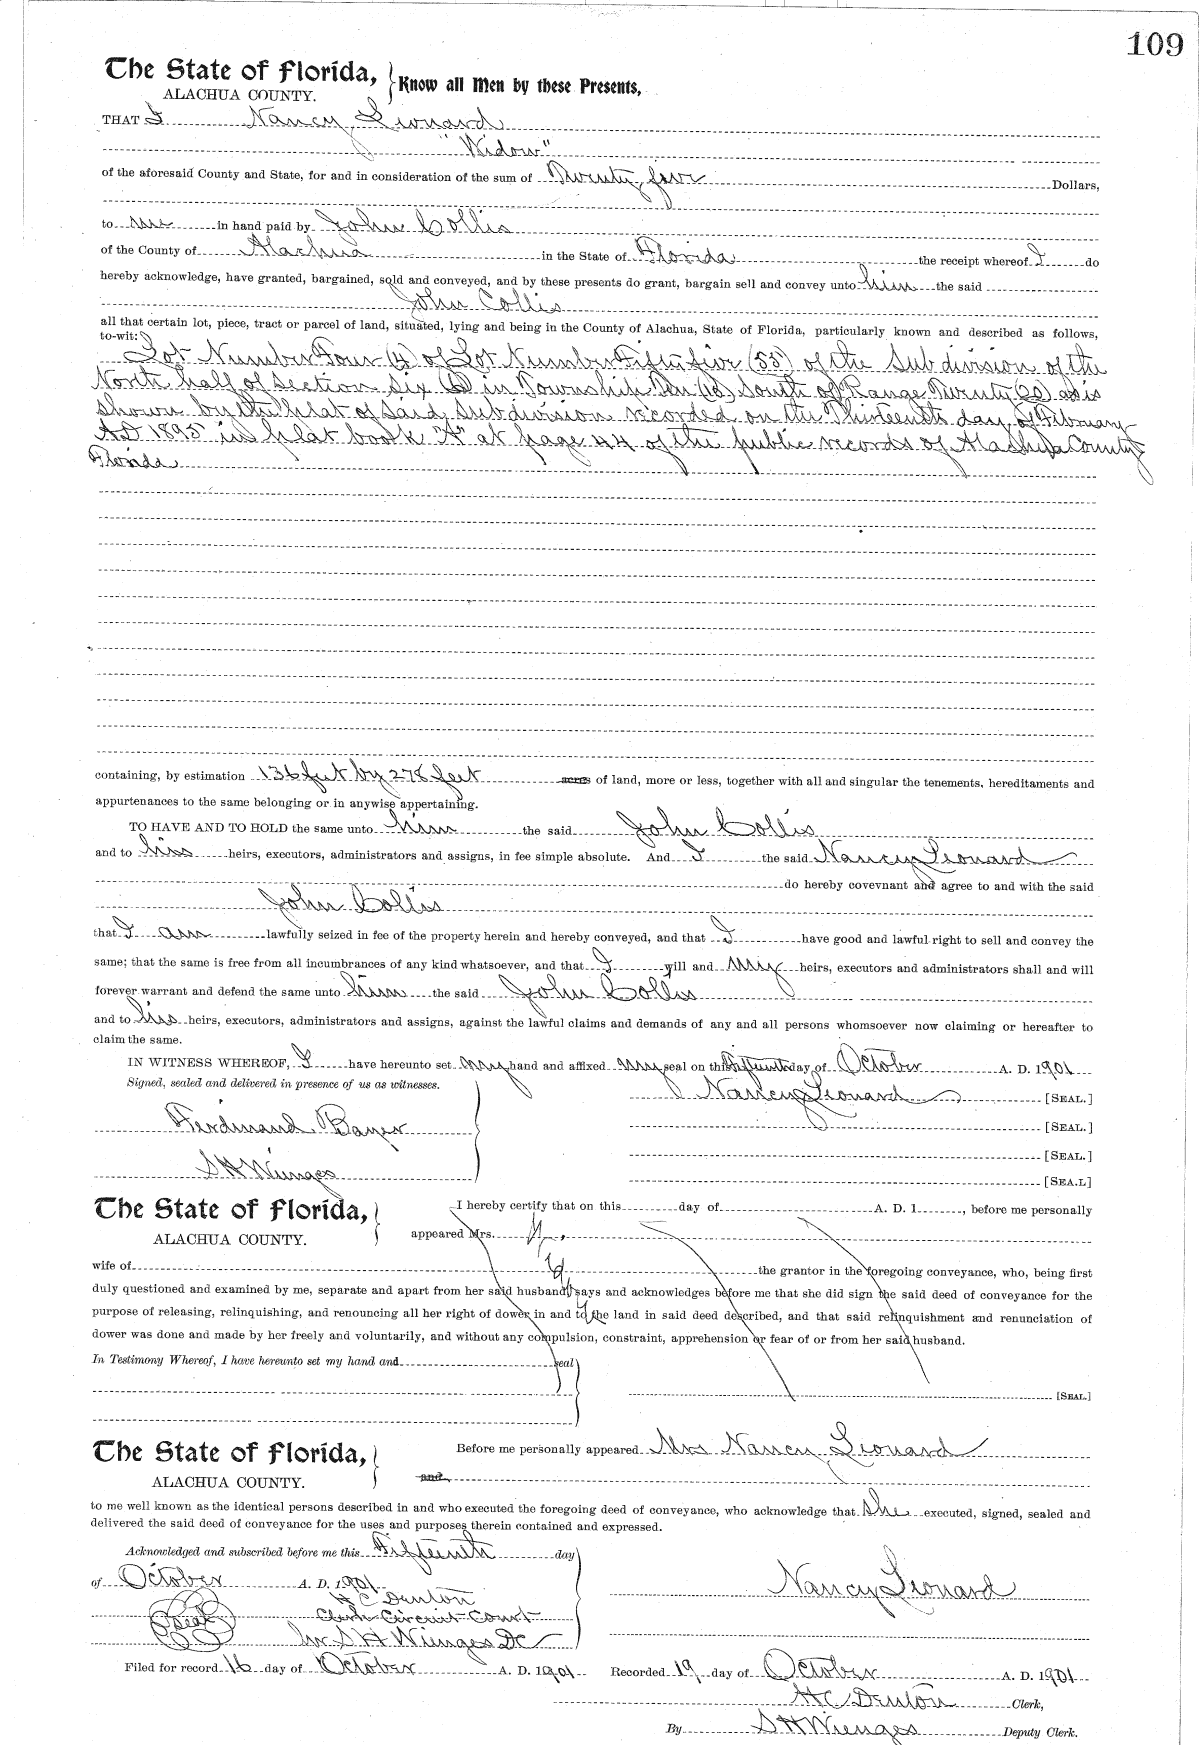 109
The State of Florida, Know all Men by these Presents,
ALACHUA COUNTY.
THAT I Nancy Leonard
"Widow"
of the aforesaid County and State, for and in consideration of the sum of Twenty five Dollars,
to me in hand paid by John Collis
of the County of Alachua in the State of Florida the receipt whereof I do
hereby acknowledge, have granted, bargained, sold and conveyed, and by these presents do grant, bargain sell and convey unto him the said
John Collis
all that certain lot, piece, tract or parcel of land, situated, lying and being in the County of Alachua, State of Florida, particularly known and described as follows,
to-wit:
Lot Number Four (4) of Lot Number Fifty five (55) of the Subdivision of the
North half of section six (6) in Township Ten (10) South of Range Twenty (20) as is
shown by the plat of said subdivision recorded on the Thirteenth day of February
AD 1895 in plat book "A" at page 44 of the public records of Alachua County
Florida
containing, by estimation 136 feet by 278 feet acres of land, more or less, together with all and singular the tenements, hereditaments and
appurtenances to the same belonging or in anywise appertaining.
TO HAVE AND TO HOLD the same unto him the said John Collis
and to his heirs, executors, administrators and assigns, in fee simple absolute. And I the said Nancy Leonard
do hereby covevnant and agree to and with the said
John Collis
that I am lawfully seized in fee of the property herein and hereby conveyed, and that I have good and lawful right to sell and convey the
same; that the same is free from all incumbrances of any kind whatsoever, and that I will and my heirs, executors and administrators shall and will
forever warrant and defend the same unto him the said John Collis
and to his heirs, executors, administrators and assigns, against the lawful claims and demands of any and all persons whomsoever now claiming or hereafter to
claim the same.
IN WITNESS WHEREOF, I have hereunto set my hand and affixed my seal on this fifteenth day of October A. D. 1901
Signed, sealed and delivered in presence of us as witnesses. Nancy Leonard [SEAL.]
Ferdinand Bayer [SEAL.]
[SEAL.]
S H Wienges [SEA.L]
The State of Florida, I hereby certify that on this day of A. D. 1 , before me personally
ALACHUA COUNTY. appeared Mrs.
wife of the grantor in the foregoing conveyance, who, being first
duly questioned and examined by me, separate and apart from her said husband, says and acknowledges before me that she did sign the said deed of conveyance for the
purpose of releasing, relinquishing, and renouncing all her right of dower in and to the land in said deed described, and that said relinquishment and renunciation of
dower was done and made by her freely and voluntarily, and without any compulsion, constraint, apprehension or fear of or from her said husband.
In Testimony Whereof, I have hereunto set my hand and seal
[SEAL.]
The State of Florida, Before me personally appeared Mrs Nancy Leonard
ALACHUA COUNTY. and
to me well known as the identical persons described in and who executed the foregoing deed of conveyance, who acknowledge that she executed, signed, sealed and
delivered the said deed of conveyance for the uses and purposes therein contained and expressed.
Acknowledged and subscribed before me this Fifteenth day
of October A. D. 1901 Nancy Leonard
H C Denton
Clerk Circuit Court
Seal S H Wienges DC
Filed for record 16 day of October A. D. 1901 Recorded 19 day of October A. D. 1901
H C Denton Clerk,
By S H Wienges Deputy Clerk.